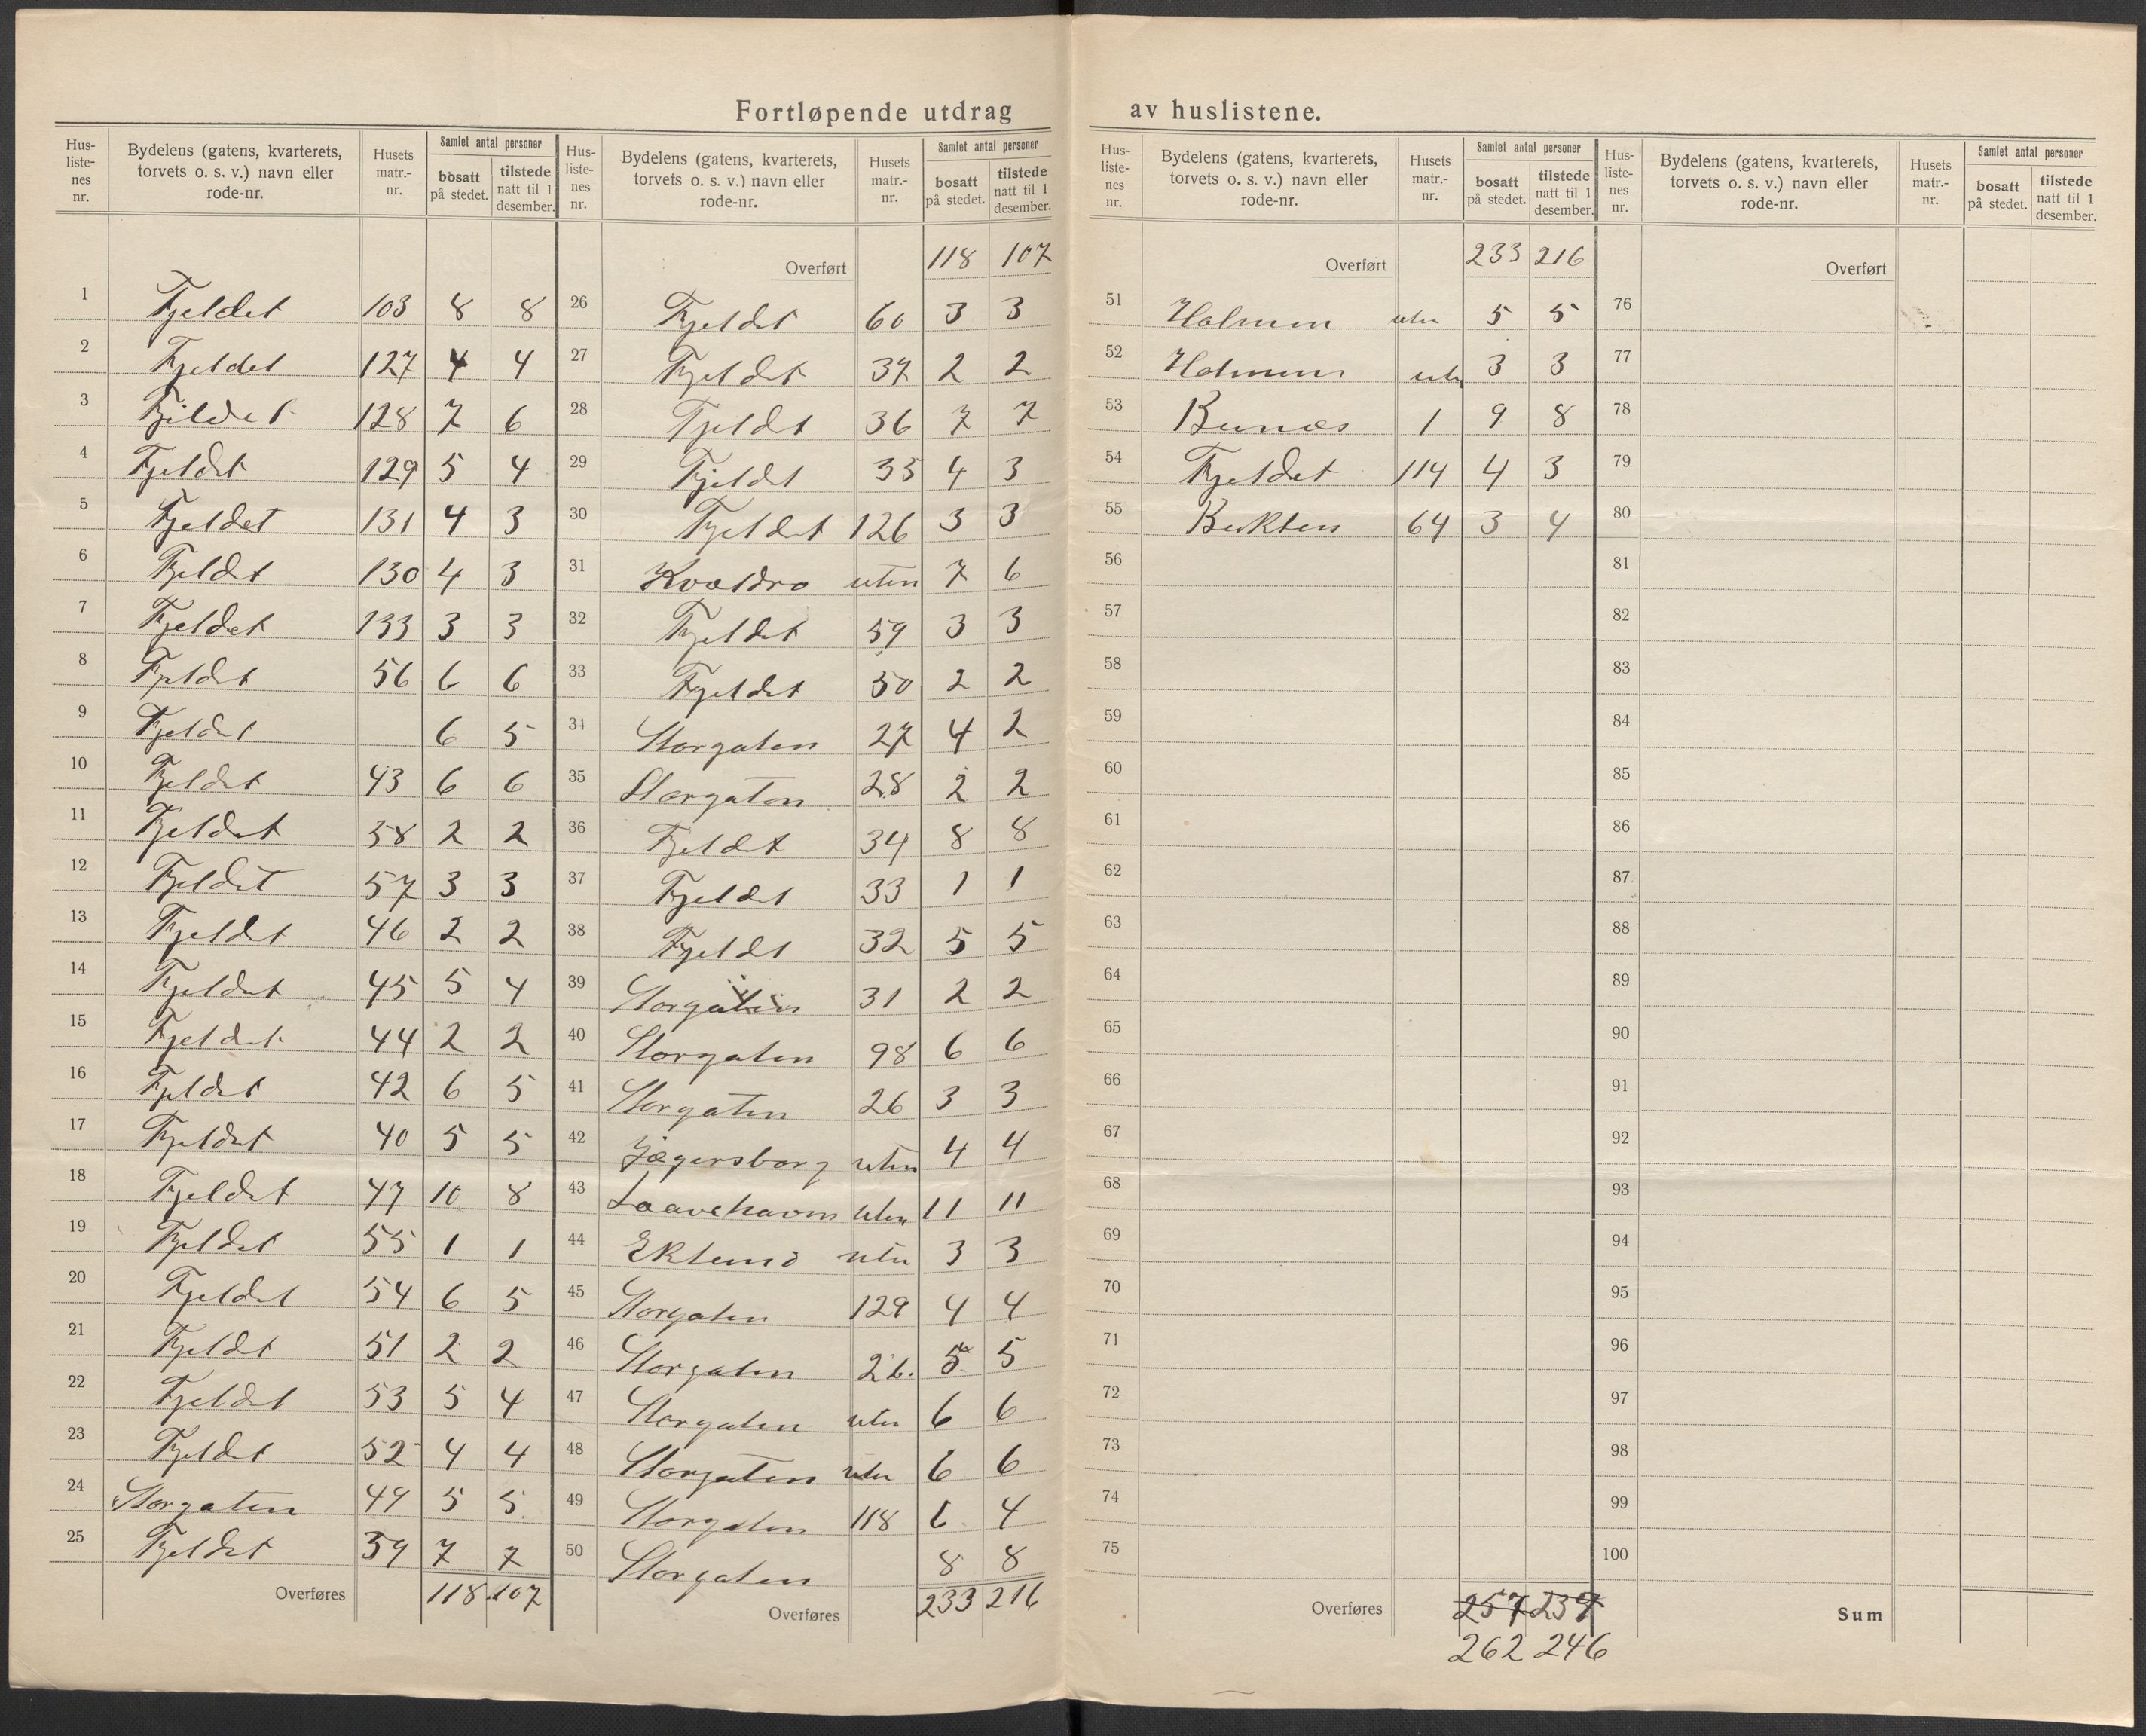 Fortløpende utdrag av huslistene.
Hus-
liste-
nes
nr.
Bydelens (gatens, kvarterets,
torvets o. s. v.) navn eller
rode-nr.
Husets
matr.-
nr.
Samlet antal personer
bosatt
på stedet.
tilstede
natt til 1
desember.
1 Fjeldet 103 8 8
2 Fjeldet 127 4 4
3 Fjeldet 128 7 6
4 Fjeldet 129 5 4
5 Fjeldet 131 4 3
6 Fjeldet 130 4 3
7 Fjeldet 133 3 3
8 Fjeldet 56 6 6
9 Fjeldet 6 5
10 Fjeldet 43 6 6
11 Fjeldet 58 2 2
12 Fjeldet 57 3 3
13 Fjeldet 46 2 2
14 Fjeldet 45 5 4
15 Fjeldet 44 2 2
16 Fjeldet 42 6 5
17 Fjeldet 40 5 5
18 Fjeldet 47 10 8
19 Fjeldet 55 1 1
20 Fjeldet 54 6 5
21 Fjeldet 51 2 2
22 Fjeldet 53 5 4
23 Fjeldet 52 4 4
24 Storgaten 49 5 5
25 Fjeldet 39 7 7
Overføres 118 107
Hus-
liste-
nes
nr.
Bydelens (gatens, kvarterets,
torvets o. s. v.) navn eller
rode-nr.
Husets
matr.-
nr.
Samlet antal personer
bosatt
på stedet.
tilstede
natt til 1
desember.
Overført 118 107
26 Fjeldet 60 3 3
27 Fjeldet 37 2 2
28 Fjeldet 36 7 7
29 Fjeldet 35 4 3
30 Fjeldet 126 3 3
31 Kvældro uten 7 6
32 Fjeldet 59 3 3
33 Fjeldet 50 2 2
34 Storgaten 27 4 2
35 Storgaten 28 2 2
36 Fjeldet 34 8 8
37 Fjeldet 33 1 1
38 Fjeldet 32 5 5
39 Storgaten 31 2 2
40 Storgaten 98 6 6
41 Storgaten 26 3 3
42 Jægersborg uten 4 4
43 Laavehaven uten 11 11
44 Eklund uten 3 3
45 Storgaten 129 4 4
46 Storgaten 26. 5 5
47 Storgaten uten 6 6
48 Storgaten uten 6 6
49 Storgaten 118 6 4
50 Storgaten 8 8
Overføres 233 216
Hus-
liste-
nes
nr.
Bydelens (gatens, kvarterets,
torvets o. s. v.) navn eller
rode-nr.
Husets
matr.-
nr.
Samlet antal personer
bosatt
på stedet.
tilstede
natt til 1
desember.
Overført 233 216
51 Holmen uten 5 5
52 Holmen uten 3 3
53 Bunæs 1 9 8
54 Fjeldet 114 4 3
55 Bukten 64 3 4
56
57
58
59
60
61
62
63
64
65
66
67
68
69
70
71
72
73
74
75
Overføres 257 239
262 246
Hus-
liste-
nes
nr.
Bydelens (gatens, kvarterets,
torvets o. s. v.) navn eller
rode-nr.
Husets
matr.-
nr.
Samlet antal personer
bosatt
på stedet.
tilstede
natt til 1
desember.
Overført
76
77
78
79
80
81
82
83
84
85
86
87
88
89
90
91
92
93
94
95
96
97
98
99
100
Sum